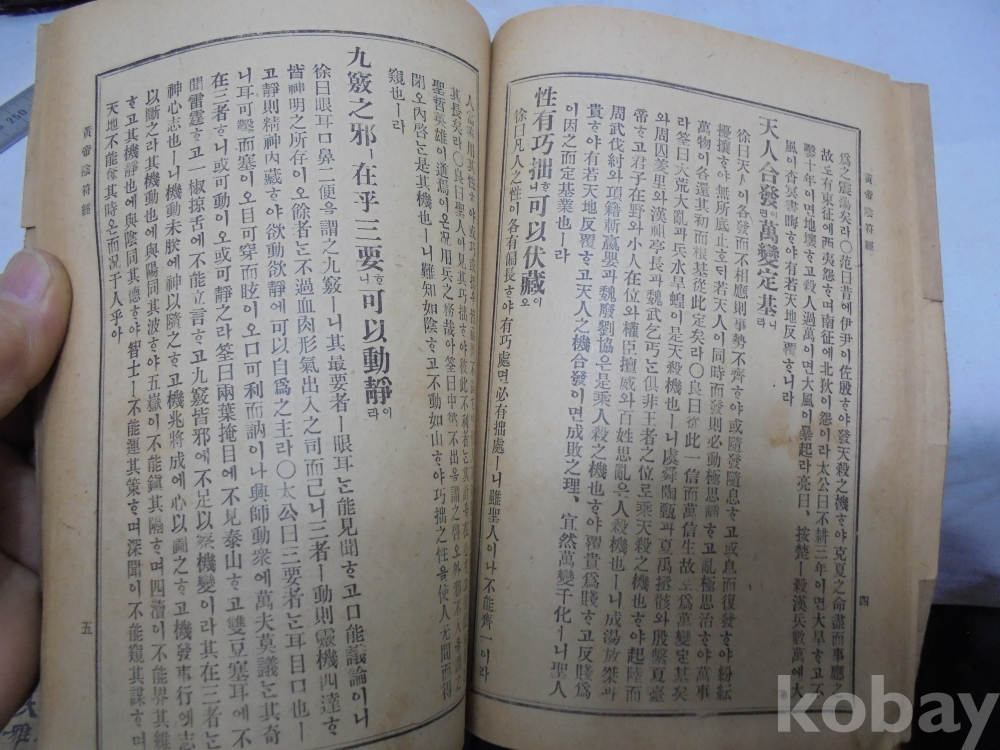 黃帝陰符經
四
爲之震蕩矣라〇范曰昔에伊尹이佐殷ᄒᆞ야發天殺之機ᄒᆞ야克夏之命盡而事應之
故로有東征에西夷怨ᄒᆞ며南征에北狄이怨이라太公曰不耕三年이면大旱ᄒᆞ고不
鑿十年이면地壞ᄒᆞ고殺人過萬이면大風이暴起라亮曰、按楚ㅣ殺漢兵數萬에大
風이杳冥晝晦ᄒᆞ야有若天地反覆ᄒᆞ니라
天人合發이면萬變定基니라
徐曰天人이各發而不相應則事勢不齊ᄒᆞ야或隨發隨息ᄒᆞ고或息而復發ᄒᆞ야紛紜
擾攘ᄒᆞ야無所底止호ᄃᆡ若天人이同時而發則必動極思靜ᄒᆞ고亂極思治ᄒᆞ야萬事
萬物이各還其初而根基從此定矣라〇良曰從此一信而萬信生故로爲萬變定基矣
라筌曰大荒大亂과兵水旱蝗이是天殺機也ㅣ니虞舜陶甄과夏禹拯骸와殷繫夏臺
와周囚羑里와漢祖亭長과魏武乞丐는俱非王者之位로乘天殺之機也ᄒᆞ야起陸而
帝ᄒᆞ고君子在野와小人在位와權臣擅威와百姓思亂은人殺機也ㅣ니成湯放桀과
周武伐紂와項籍斬嬴嬰과魏廢劉協은是乘人殺之機也ᄒᆞ야覆貴爲賤ᄒᆞ고反賤爲
貴ᄒᆞ야有若天地反覆ᄒᆞ고天人之機合發이면成敗之理、宜然萬變千化ㅣ니聖人
이因之而定基業也ㅣ라
性有巧拙ᄒᆞ니可以伏藏이오
徐曰凡人之性이各有偏長ᄒᆞ야有巧處면必有拙處ㅣ니雖聖人이나不能齊一이라
黃帝陰符經
五
其長矣라〇良曰聖人이見其巧拙ᄒᆞ야彼此不利者는其計在心
聖哲英雄이道焉이온况用兵之務哉아筌曰中欲不出을謂之啓오外邪不入을謂之
閉오內啓는是其機也ㅣ니難知如陰ᄒᆞ고不動如山ᄒᆞ야巧拙之性을使人无間而得
窺也ㅣ라
九竅之邪ㅣ在乎三要ᄒᆞ니可以動靜이라
徐曰眼耳口鼻二便을謂之九竅ㅣ니其最要者ㅣ眼耳는能見聞ᄒᆞ고口能議論이니
皆神明之所存이오餘者는不過血肉形氣出入之司而已니三者ㅣ動則靈機四達ᄒᆞ
고靜則精神內藏ᄒᆞ야欲動欲靜에可以自爲之主라〇太公曰三要者는耳目口也ㅣ
니耳可鑿而塞이오目可穿而眩이오口可利而訥이나興師動衆에萬夫莫議는其奇
在三者ᄒᆞ니或可動이오或可靜之라筌曰兩葉掩目에不見泰山ᄒᆞ고雙豆塞耳에不
聞雷霆ᄒᆞ고一椒掠舌에不能立言ᄒᆞ고九竅皆邪에不足以察機變이라其在三者는
神心志也ㅣ니機動未朕에神以隨之ᄒᆞ고機兆將成에心以圖之ᄒᆞ고機發事行에志
以斷之라其機動也에與陽同其波ᄒᆞ야五嶽이不能鎭其隅ᄒᆞ며四瀆이不能界其維
ᄒᆞ고其機靜也에與陰同其德ᄒᆞ야智士ㅣ不能運其策ᄒᆞ며深聞이不能窺其謀ᄒᆞ며
天地不能奪其時온而況于人乎아
kobay